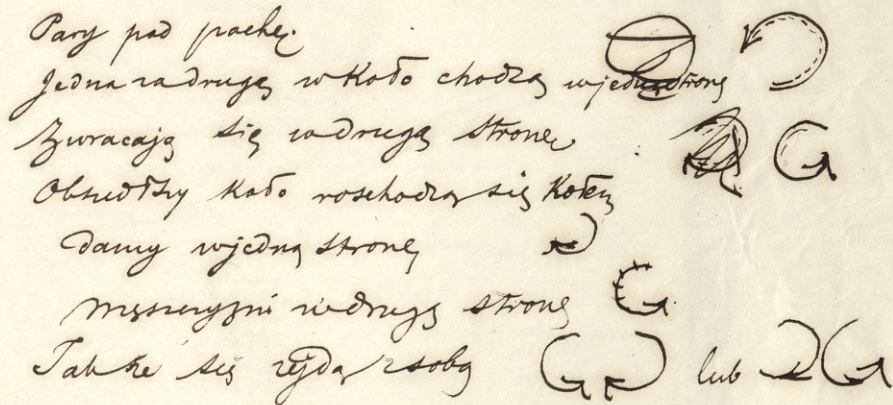 Pary pod pachę.
Jedna za drugą w Koło chodzą w jedną stronę
Zwracają się w drugą stronę
Obszedłszy Koło rozchodzą się Kołem
damy w jedną stronę
mężczyźni w drugą stronę
Tak że się zejdą z sobą lub